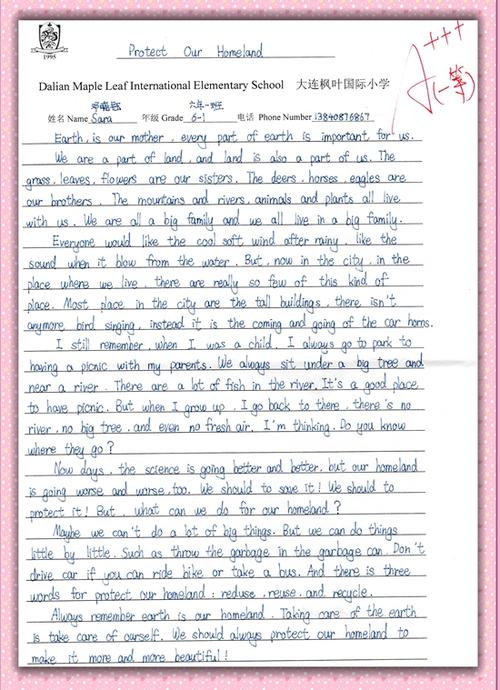 1995
Protect Our Homeland
Dalian Maple Leaf International Elementary School 大连枫叶国际小学
+++
(一等)
六年一班
姓名 Name Sara 年级 Grade 6-1 电话 Phone Number 13840876867
Earth, is our mother, every part of earth is important for us.
We are a part of land, and land is also a part of us. The
grass, leaves, flowers are our sisters. The deers, horses, eagles are
our brothers. The mountains and rivers, animals and plants all live
with us. We are all a big family and we all live in a big family.
Everyone would like the cool soft wind after rainy, like the
sound when it blow from the water. But, now in the city, in the
place where we live, there are really so few of this kind of
place. Most place in the city are the tall buildings, there isn't
anymore bird singing, instead it is the coming and going of the car horns.
I still remember, when I was a child, I always go to park to
having a picnic with my parents. We always sit under a big tree and
near a river. There are a lot of fish in the river. It's a good place
to have picnic. But when I grow up, I go back to there, there's no
river, no big tree, and even no fresh air. I'm thinking. Do you know
where they go?
Now days, the science is going better and better, but our homeland
is going worse and worse, too. We should to save it! We should to
protect it! But, what can we do for our homeland?
Maybe we can't do a lot of big things. But we can do things
little by little. Such as throw the garbage in the garbage can. Don't
drive car if you can ride bike or take a bus. And there is three
words for protect our homeland: reduse, reuse, and recycle.
Always remember earth is our homeland. Taking care of the earth
is take care of ourself. We should always protect our homeland to
make it more and more beautiful!